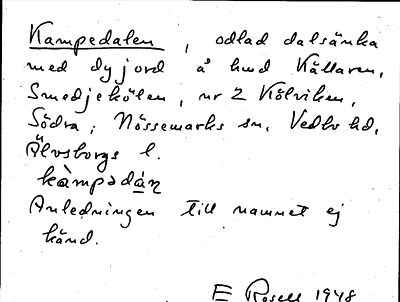 Kampedalen, odlad dalsänka
med dyjord å hmd Källaren,
Smedjekölen, nr 2 Kölviken,
Södra; Nössemarks sn, Vedbo hd,
Älvsborgs l.
kàmpədán
Anledningen till namnet ej
känd.
E Rosell 1948